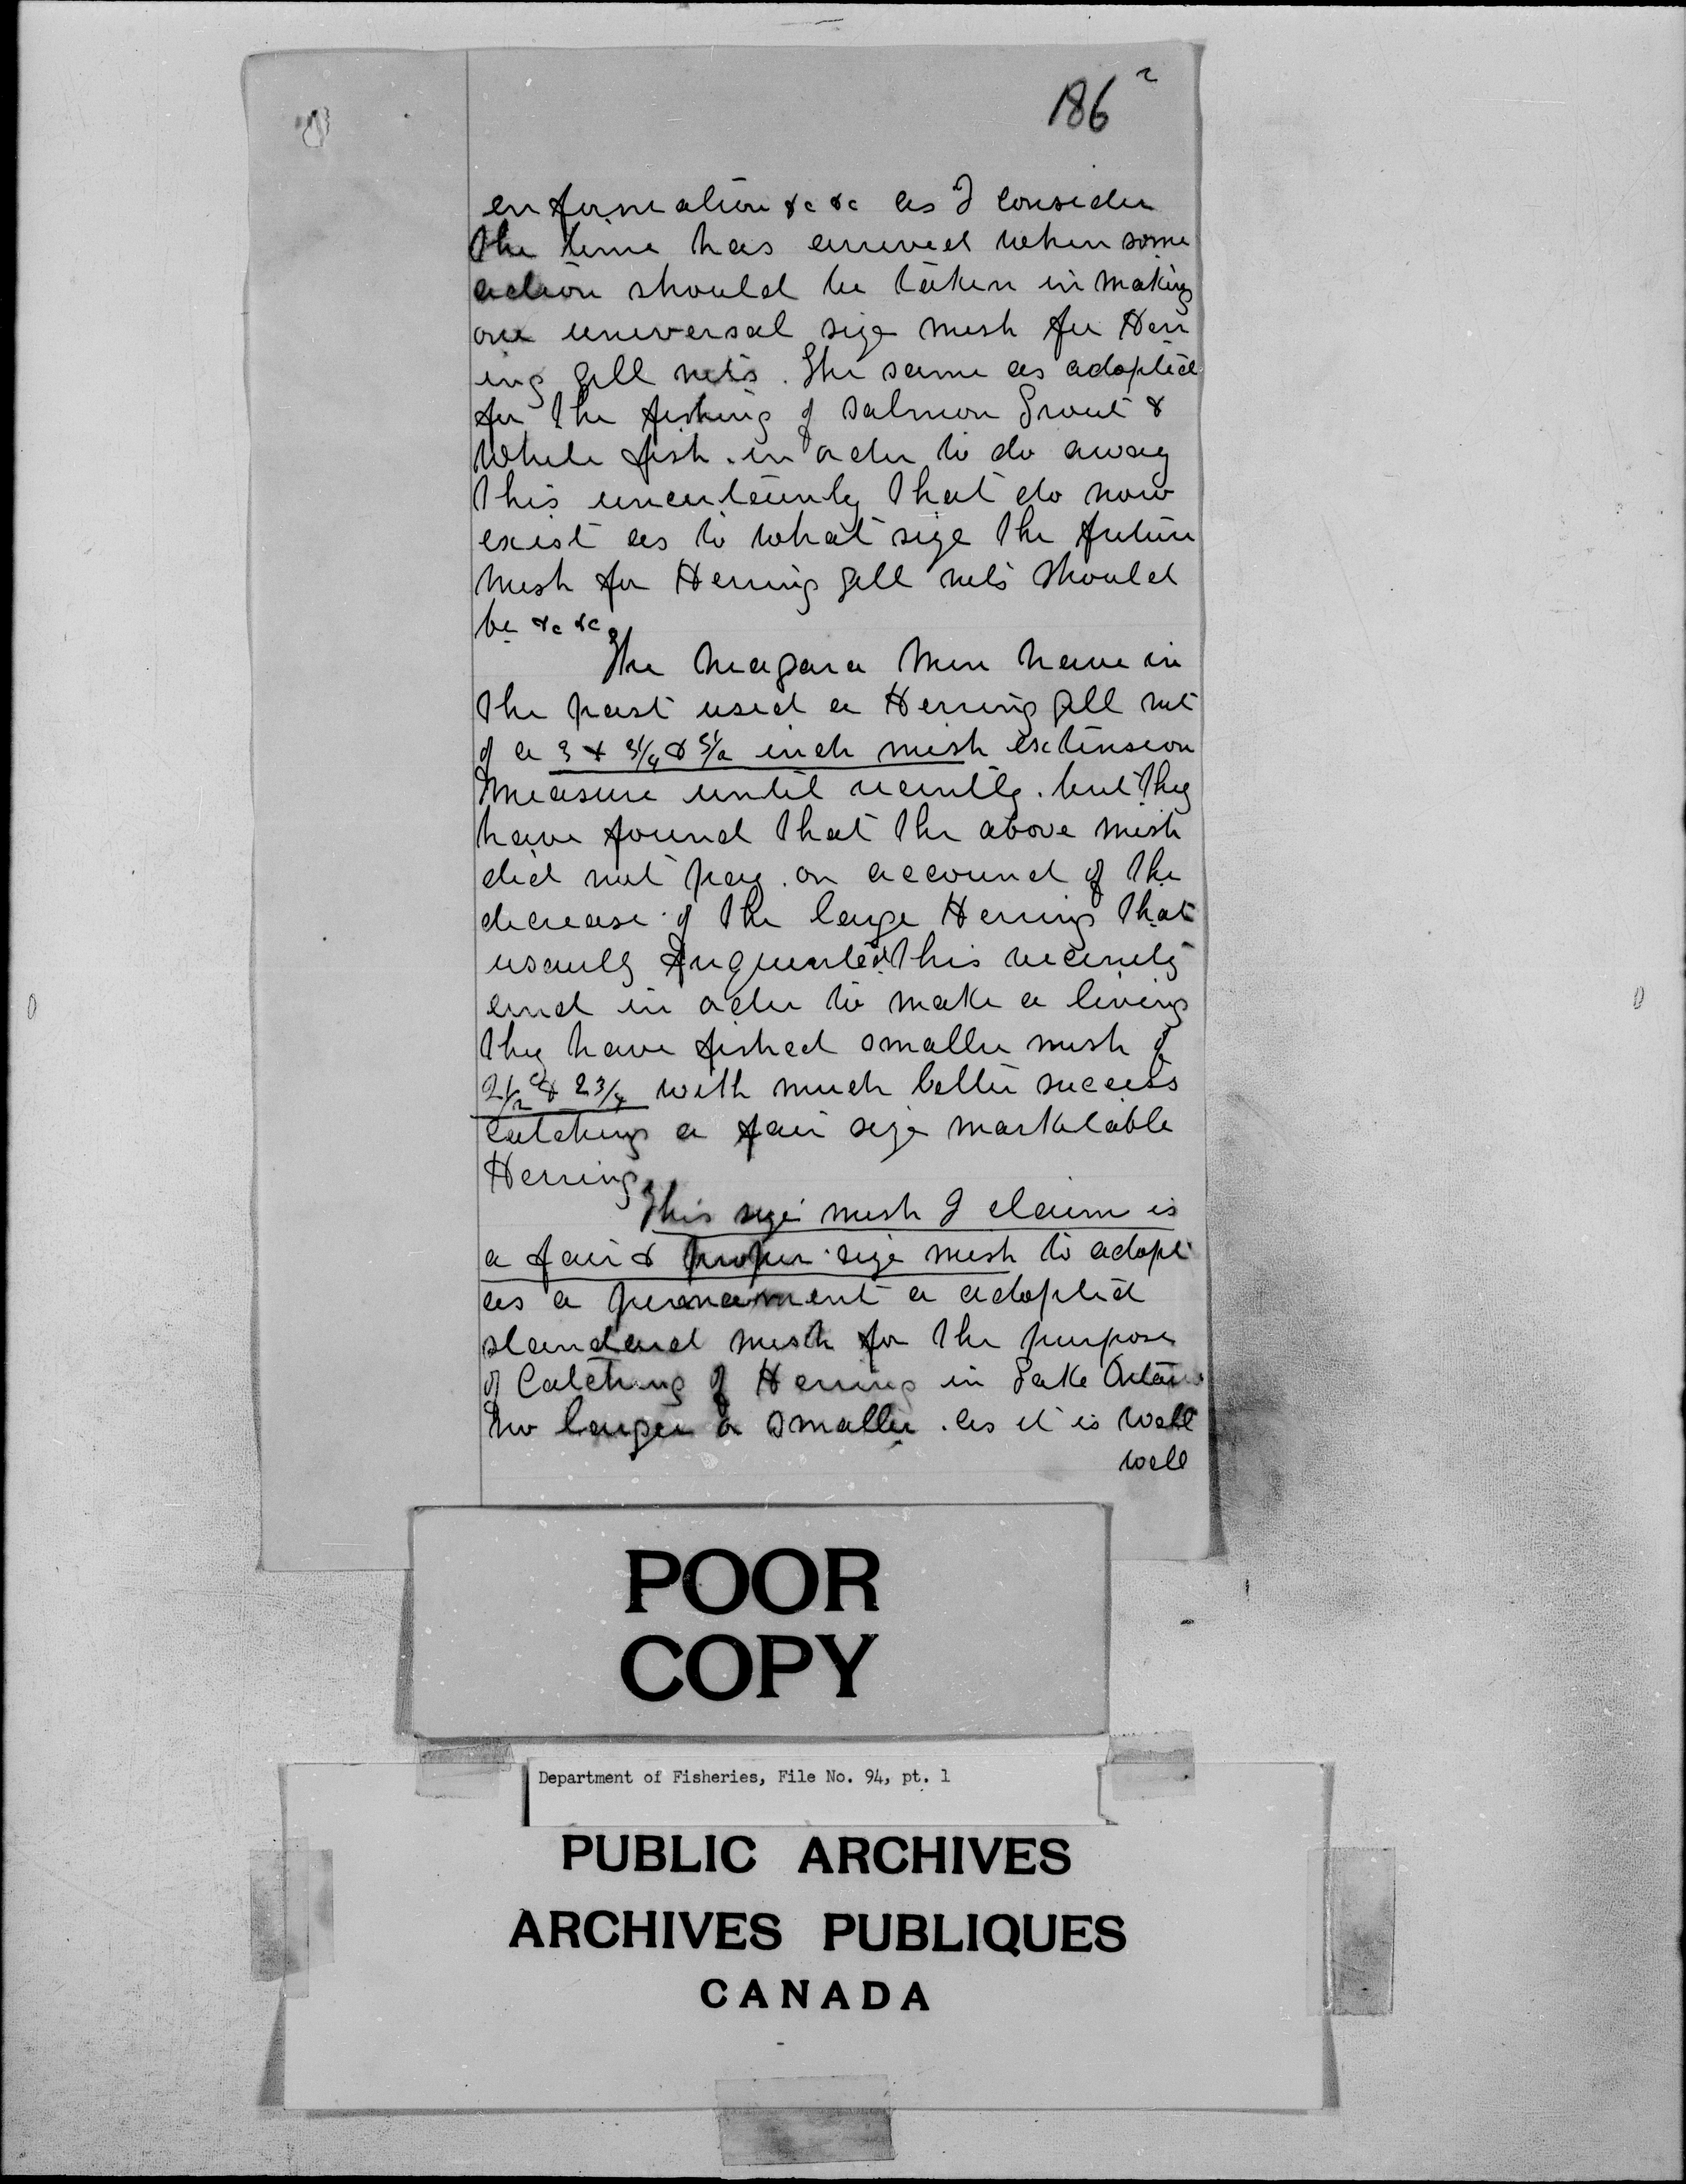 186 2
information &c &c as I consider
the time has arrived when some
action should be taken in making
one universal size mesh for Herr
ing gill nets. The same as adopted
for the fishing of Salmon Trout &
White fish. in order to do away
this uncertainty that do now
exist as to what size the future
mesh for Herring gill nets should
be &c &c
The Niagara Men have in
the past used a Herring gill net
of a 3 & 3 1/4 & 3 1/2 inch mesh extension
measure until recently. but they
have found that the above mesh
did not pay. on account of the
decrease of the large Herring that
usaully frequented this vicinity
and in order to make a living
they have fished smaller mesh of
2 1/2 & 2 3/4 with much better success
catching a fair size marketable
Herring.
This size mesh I claim is
a fair & proper size mesh to adopt
as a permanent a adopted
standard mesh for the purpose
of Catching of Herring in Lake Ontario
no larger or smaller. as it is well
well
POOR
COPY
Department of Fisheries, File No. 94, pt. 1
PUBLIC ARCHIVES
ARCHIVES PUBLIQUES
CANADA